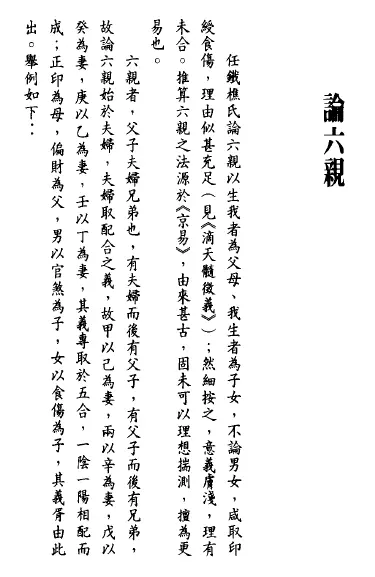 論六親
任鐵樵氏論六親以生我者為父母、我生者為子女，不論男女，咸取印
綬食傷，理由似甚充足（見《滴天髓徵義》）；然細按之，意義膚淺，理有
未合。推算六親之法源於《京易》，由來甚古，固未可以理想揣測，擅為更
易也。
六親者，父子夫婦兄弟也，有夫婦而後有父子，有父子而後有兄弟，
故論六親始於夫婦，夫婦取配合之義，故甲以己為妻，兩以辛為妻，戊以
癸為妻，庚以乙為妻，壬以丁為妻，其義專取於五合，一陰一陽相配而
成；正印為母，偏財為父，男以官煞為子，女以食傷為子，其義胥由此
出。舉例如下：